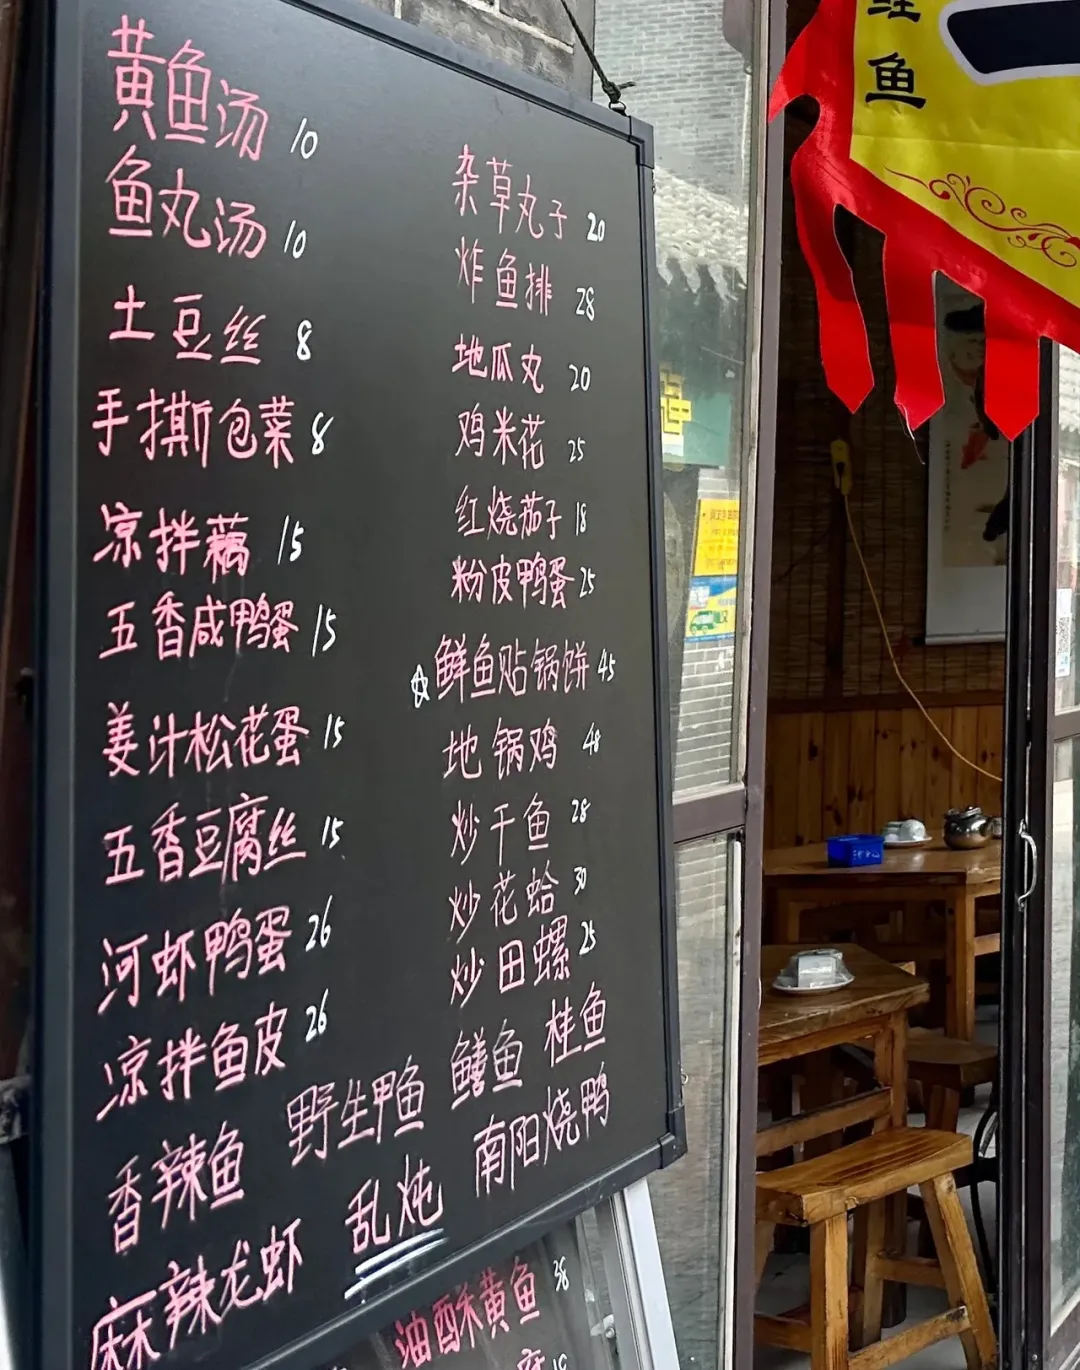 黄鱼汤 10
鱼丸汤 10
土豆丝 8
手撕包菜 8
凉拌藕 15
五香咸鸭蛋 15
姜汁松花蛋 15
五香豆腐丝 15
河虾鸭蛋 26
凉拌鱼皮 26
香辣鱼
麻辣龙虾
杂草丸子 20
炸鱼排 28
地瓜丸 20
鸡米花 25
红烧茄子 18
粉皮鸭蛋 25
☆鲜鱼贴锅饼 45
地锅鸡 48
炒干鱼 28
炒花蛤 30
炒田螺 25
野生甲鱼
鳝鱼
桂鱼
乱炖
南阳烧鸭
油酥黄鱼 38
鱼